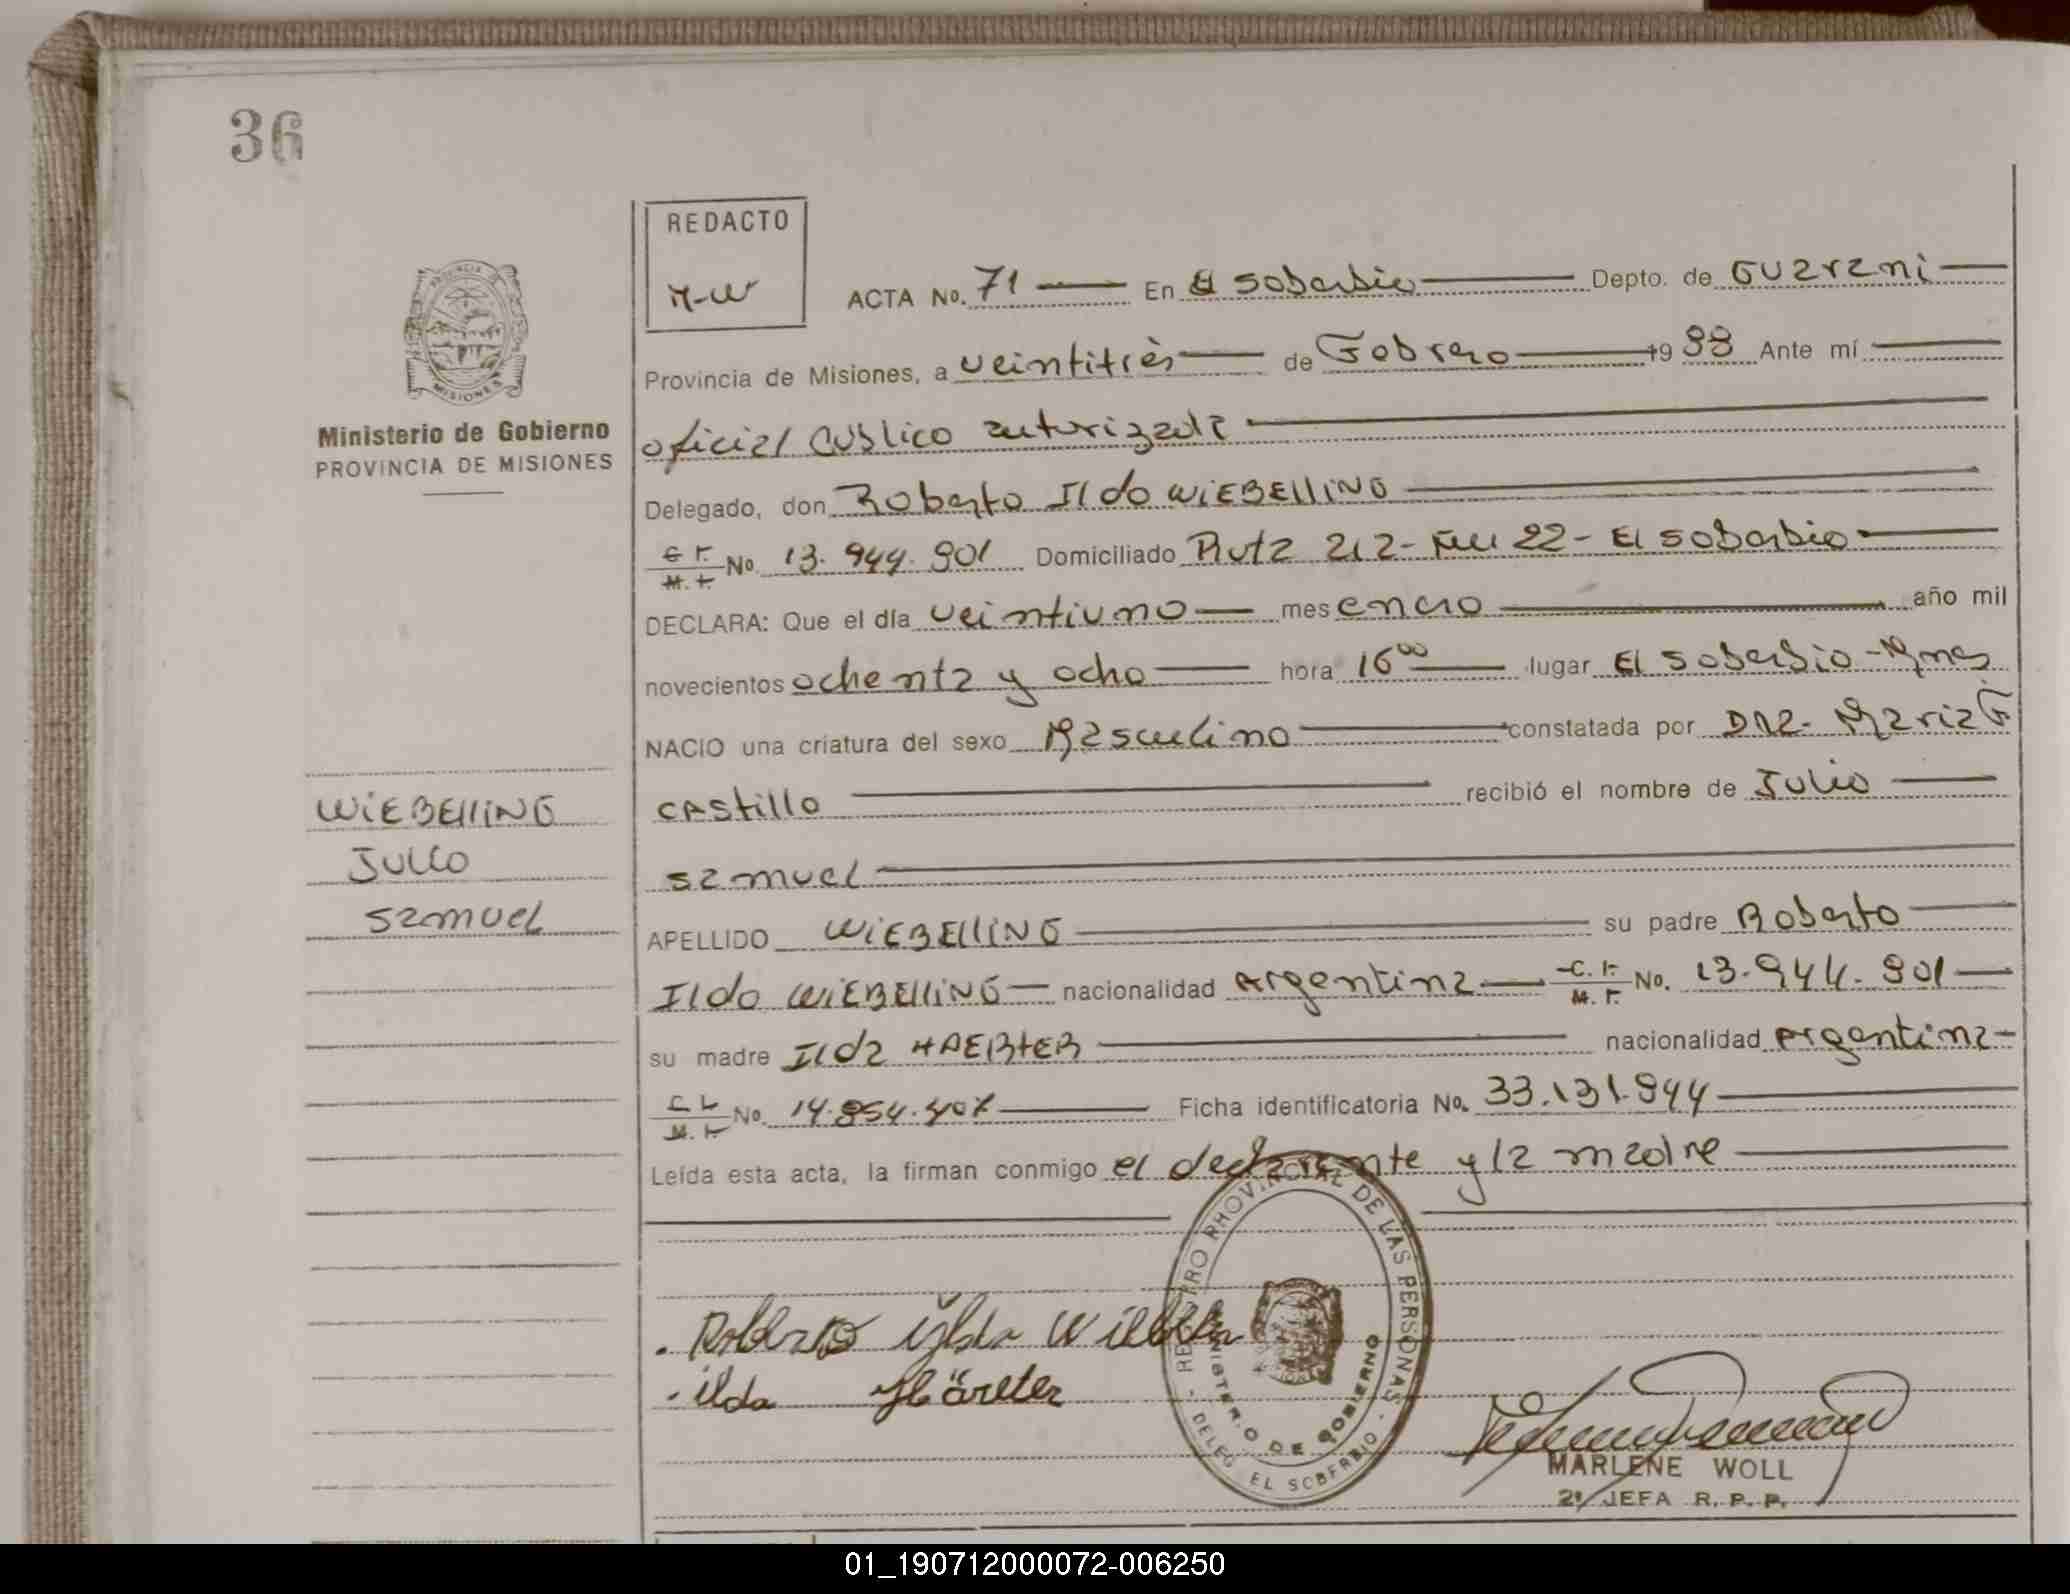 36
REDACTO
M-W
ACTA No. 71 En El Soberbio Depto. de Guarani
Provincia de Misiones, a veintitrès de Febrero 1988 Ante mí
oficial Publico autorizada
Delegado, don Roberto Ildo WIEBELLING
C. I. M. I. No. 13.944.901 Domiciliado Ruta 212- Km 22- El Soberbio
DECLARA: Que el día veintiuno mes enero año mil
novecientos ochenta y ocho hora 16⁰⁰ lugar El Soberbio-Mnes
NACIO una criatura del sexo Masculino constatada por DRA- Maria F.
CAStillo recibió el nombre de Julio
Samuel
APELLIDO WIEBELLING su padre Roberto
Ildo WIEBELLING nacionalidad Argentina C. I. M. I. No. 13.944.901
su madre Ilda HAERTER nacionalidad Argentina
C. I. M. I. No. 14.854.407 Ficha identificatoria No. 33.131.944
Leída esta acta, la firman conmigo el declarante y la madre
Ministerio de Gobierno
PROVINCIA DE MISIONES
PROVINCIA DE MISIONES
WIEBELLING
Julio
Samuel
REGISTRO PROVINCIAL DE LAS PERSONAS
MINISTERIO DE GOBIERNO
DELEG. EL SOBERBIO
Roberto ildo
ilda Härter
MARLENE WOLL
2ª JEFA R. P. P.
01_190712000072-006250